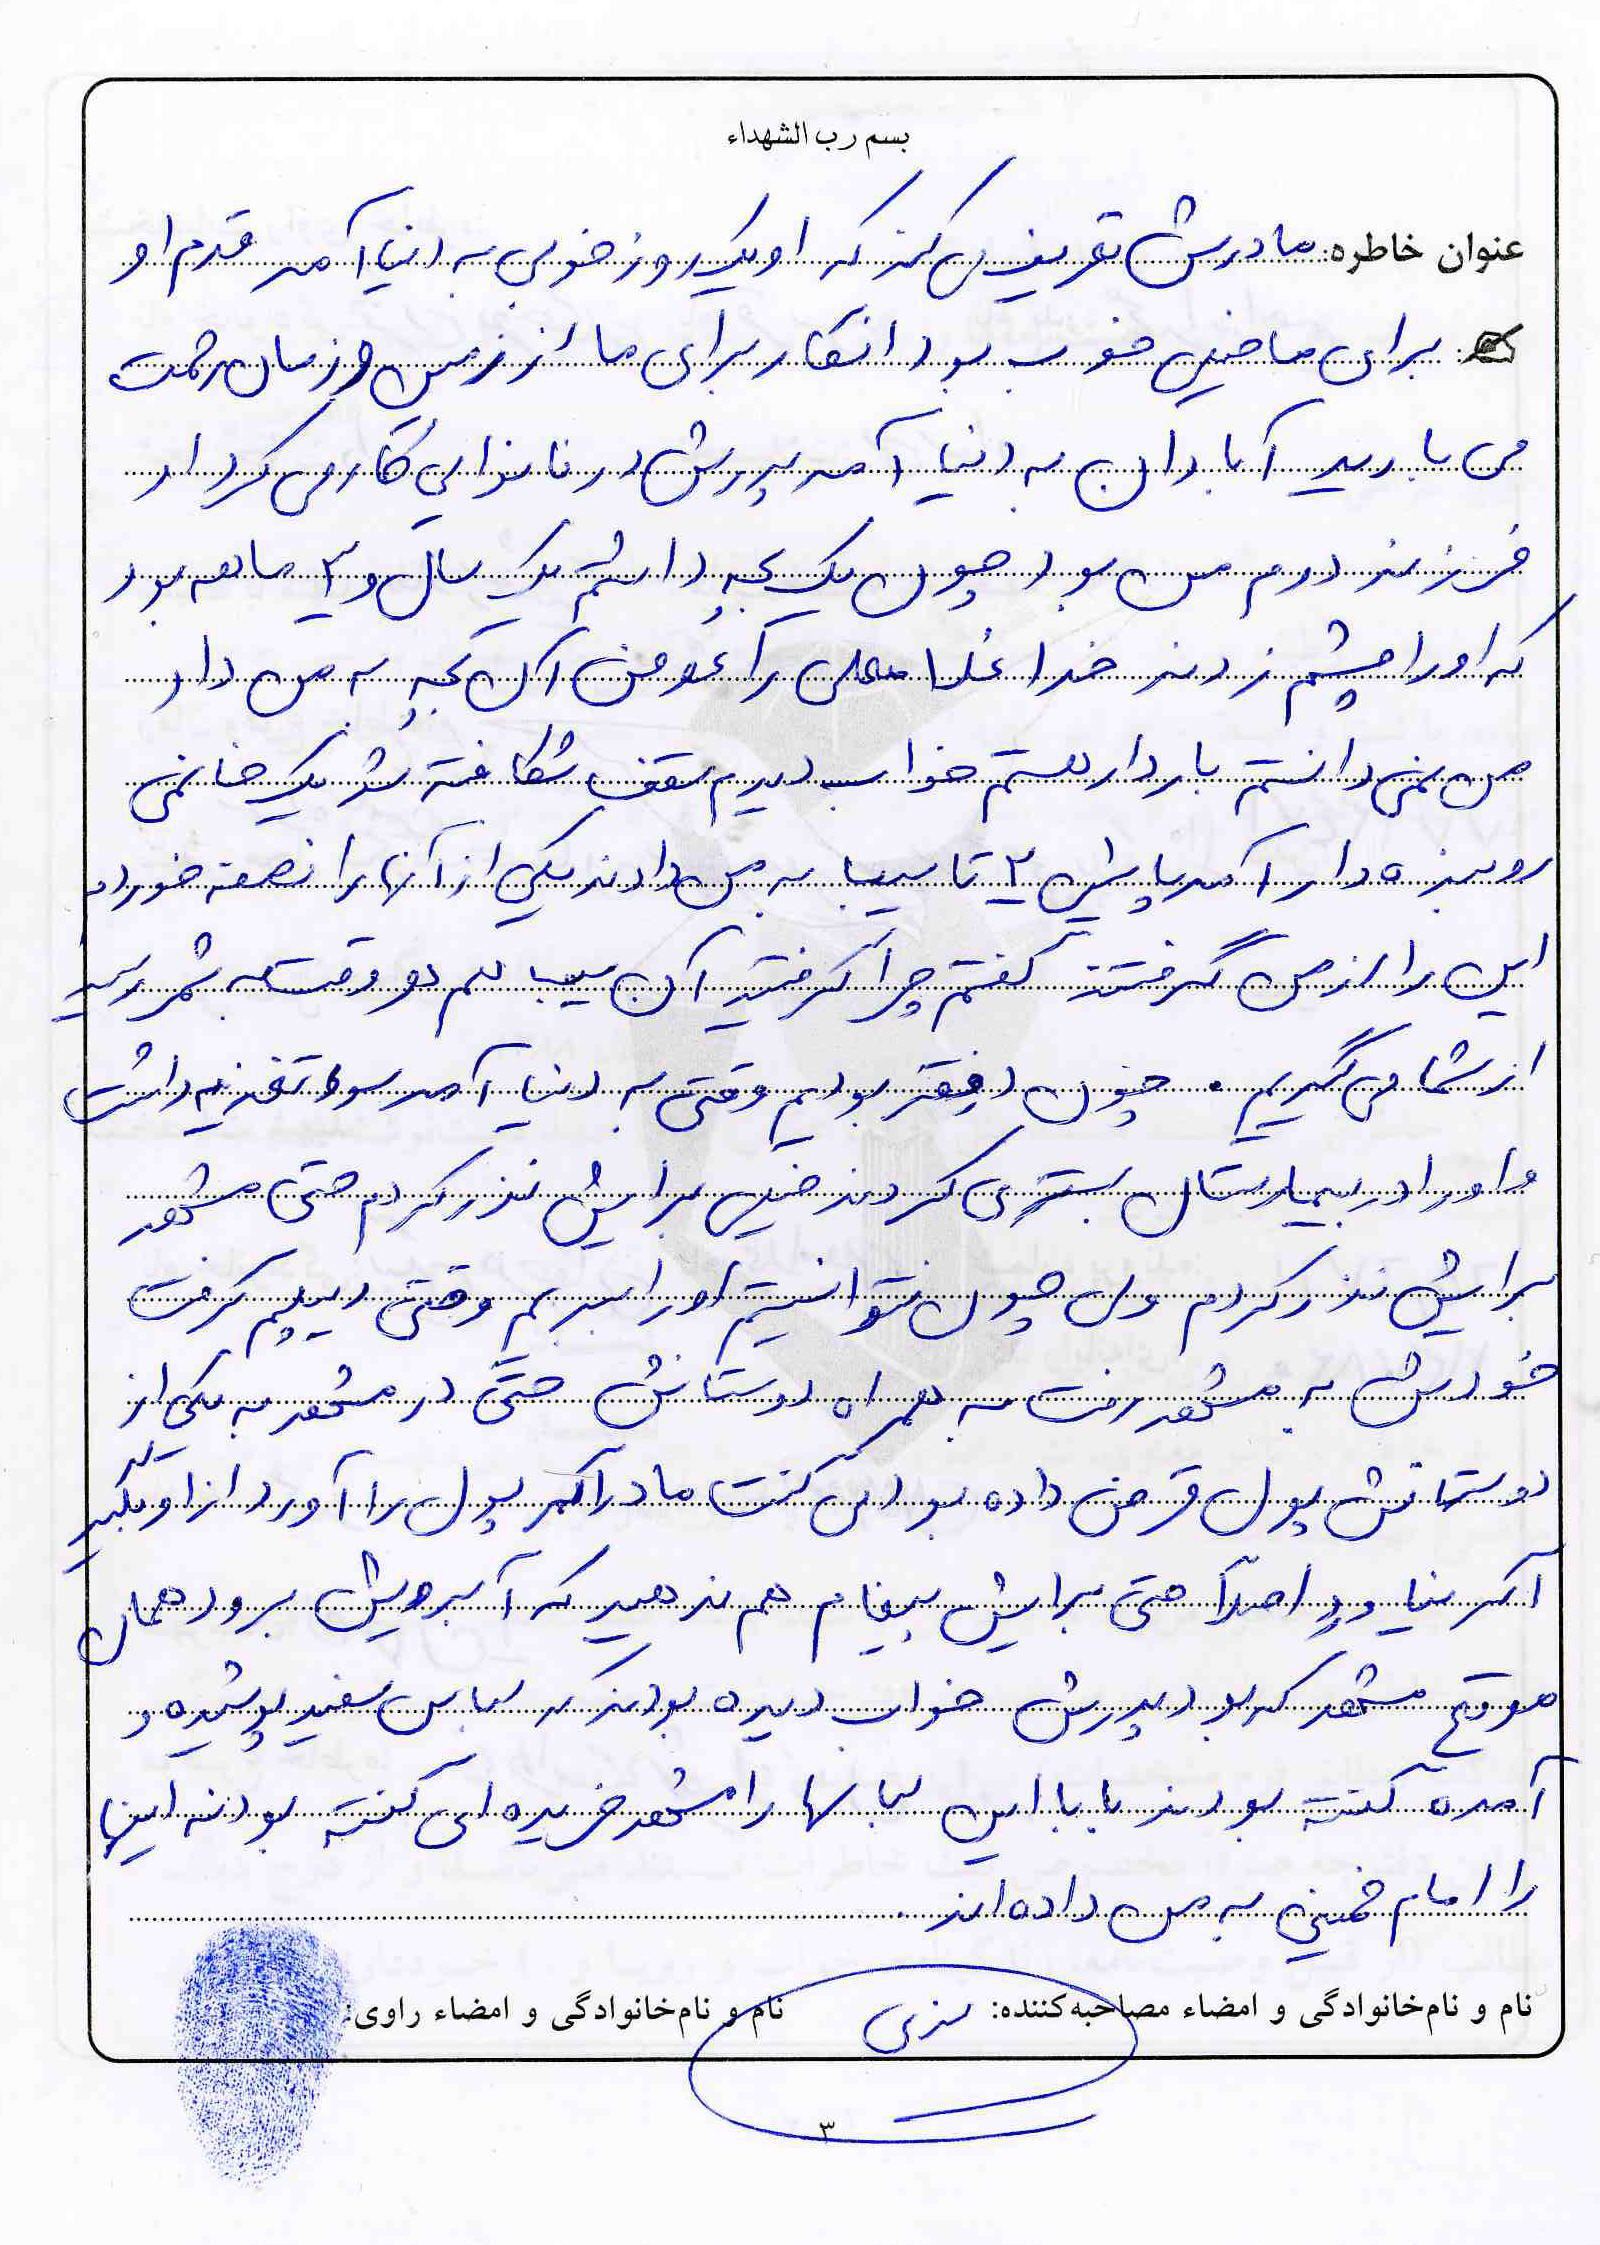 بسم رب الشهداء
عنوان خاطره: مادرش تعریف می کند که او یک روز خوبی به دنیا آمد قدم او
برای ما خیلی خوب بود انگار برای ما از زمین و زمان رحمت
می بارید آبادان به دنیا آمد پدرش در نانوایی کار می کرد او
فرزند دوم من بود چون یک بچه داشتم یک سال و ۲ ماهه بود
که او را چشم زدند خدا غلامعلی را عوض آن بچه به من داد
من نمی دانستم باردار هستم خواب دیدم سقف شکافته شد یک خانمی
روبنده دار آمد پایین ۲ تا سیب به من دادند یکی از آنها را نصفه خوردم
این را از من گرفتند گفتم چرا گرفتید آن سیب هم هر وقت به ثمر رسید
از شما می گیریم. چون فقیر بودیم وقتی به دنیا آمد سوء تغذیه داشت
و او را در بیمارستان بستری کردند خیلی برایش نذر کردم حتی مشهد
برایش نذر کردم ولی چون نتوانستیم او را ببریم وقتی دیپلم گرفت
خودش به مشهد رفت به همراه دوستانش حتی در مشهد به یکی از
دوستانش پول قرض داده بود می گفت مادر اگر پول را آورد از او بگیرید
اگر نیاورد اصلاً حتی برایش پیغام هم ندهید که آبرویش برود همان
موقع مشهد که بود پدرش خواب دیده بودند که لباس سفید پوشیده و
آمده گفته بودند بابا این لباسها را مشهد خریده ای گفته بود نه اینها
را امام خمینی به من داده اند.
نام و نام‌خانوادگی و امضاء مصاحبه‌کننده:
نام و نام‌خانوادگی و امضاء راوی:
۳